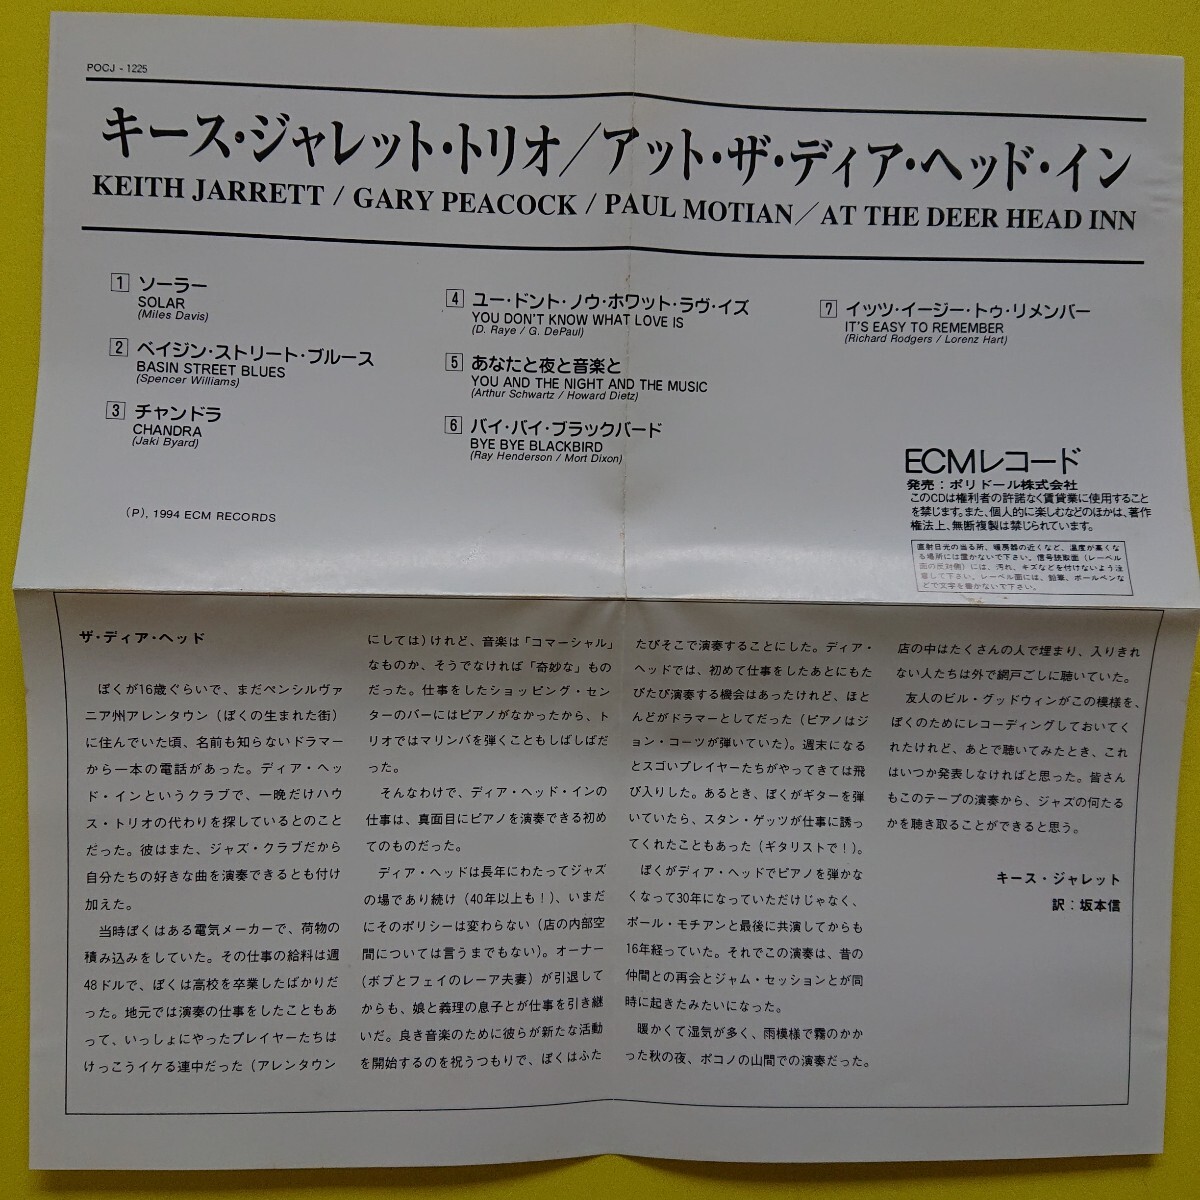 POCJ - 1225
キース・ジャレット・トリオ／アット・ザ・ディア・ヘッド・イン
KEITH JARRETT / GARY PEACOCK / PAUL MOTIAN／AT THE DEER HEAD INN
1 ソーラー
SOLAR
(Miles Davis)
2 ベイジン・ストリート・ブルース
BASIN STREET BLUES
(Spencer Williams)
3 チャンドラ
CHANDRA
(Jaki Byard)
4 ユー・ドント・ノウ・ホワット・ラヴ・イズ
YOU DON'T KNOW WHAT LOVE IS
(D. Raye / G. DePaul)
5 あなたと夜と音楽と
YOU AND THE NIGHT AND THE MUSIC
(Arthur Schwartz / Howard Dietz)
6 バイ・バイ・ブラックバード
BYE BYE BLACKBIRD
(Ray Henderson / Mort Dixon)
7 イッツ・イージー・トゥ・リメンバー
IT'S EASY TO REMEMBER
(Richard Rodgers / Lorenz Hart)
ECMレコード
発売：ポリドール株式会社
このCDは権利者の許諾なく賃貸業に使用すること
を禁じます。また、個人的に楽しむなどのほかは、著作
権法上、無断複製は禁じられています。
直射日光の当る所、暖房器の近くなど、温度が高くな
る場所には置かないで下さい。信号読取面（レーベル
面の反対側）には、汚れ、キズなどを付けないよう注
意して下さい。レーベル面には、鉛筆、ボールペンな
どで文字を書かないで下さい。
(P), 1994 ECM RECORDS
ザ・ディア・ヘッド
ぼくが16歳ぐらいで、まだペンシルヴァ
ニア州アレンタウン（ぼくの生まれた街）
に住んでいた頃、名前も知らないドラマー
から一本の電話があった。ディア・ヘッ
ド・インというクラブで、一晩だけハウ
ス・トリオの代わりを探しているとのこと
だった。彼はまた、ジャズ・クラブだから
自分たちの好きな曲を演奏できるとも付け
加えた。
当時ぼくはある電気メーカーで、荷物の
積み込みをしていた。その仕事の給料は週
48ドルで、ぼくは高校を卒業したばかりだ
った。地元では演奏の仕事をしたこともあ
って、いっしょにやったプレイヤーたちは
けっこうイケる連中だった（アレンタウン
にしては）けれど、音楽は「コマーシャル」
なものか、そうでなければ「奇妙な」もの
だった。仕事をしたショッピング・セン
ターのバーにはピアノがなかったから、ト
リオではマリンバを弾くこともしばしばだ
った。
そんなわけで、ディア・ヘッド・インの
仕事は、真面目にピアノを演奏できる初め
てのものだった。
ディア・ヘッドは長年にわたってジャズ
の場であり続け（40年以上も！）、いまだ
にそのポリシーは変わらない（店の内部空
間については言うまでもない）。オーナー
（ボブとフェイのレーア夫妻）が引退して
からも、娘と義理の息子とが仕事を引き継
いだ。良き音楽のために彼らが新たな活動
を開始するのを祝うつもりで、ぼくはふた
たびそこで演奏することにした。ディア・
ヘッドでは、初めて仕事をしたあとにもた
びたび演奏する機会はあったけれど、ほと
んどがドラマーとしてだった（ピアノはジ
ョン・コーツが弾いていた）。週末になる
とスゴいプレイヤーたちがやってきては飛
び入りした。あるとき、ぼくがギターを弾
いていたら、スタン・ゲッツが仕事に誘っ
てくれたこともあった（ギタリストで！）。
ぼくがディア・ヘッドでピアノを弾かな
くなって30年になっていただけじゃなく、
ポール・モチアンと最後に共演してからも
16年経っていた。それでこの演奏は、昔の
仲間との再会とジャム・セッションとが同
時に起きたみたいになった。
暖かくて湿気が多く、雨模様で霧のかか
った秋の夜、ポコノの山間での演奏だった。
店の中はたくさんの人で埋まり、入りきれ
ない人たちは外で網戸ごしに聴いていた。
友人のビル・グッドウィンがこの模様を、
ぼくのためにレコーディングしておいてく
れたけれど、あとで聴いてみたとき、これ
はいつか発表しなければと思った。皆さん
もこのテープの演奏から、ジャズの何たる
かを聴き取ることができると思う。
キース・ジャレット
訳：坂本信